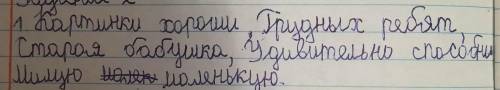 1 Картинки хороши, Трудных ребят,
Старая бабушка, Удивительно способны
Милую маленькую.